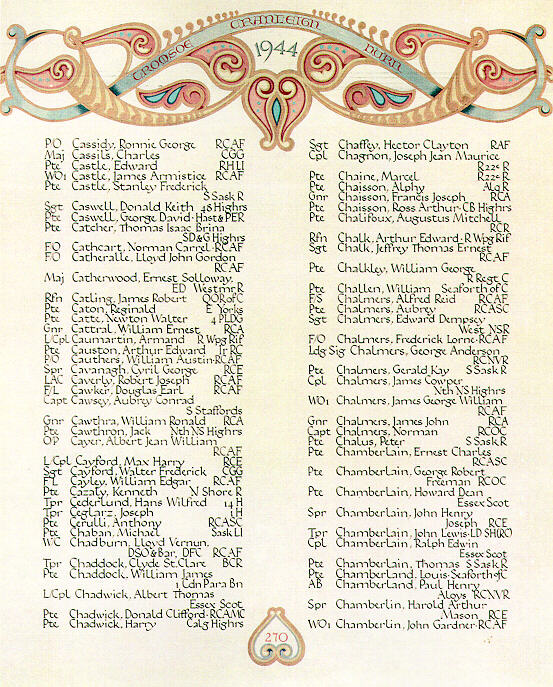 TROMSOE CRANLEIGH DURN
1944
P/O Cassidy, Ronnie George RCAF
Maj Cassils, Charles CGG
Pte Castle, Edward RHLI
WO1 Castle, James Armistice RCAF
Pte Castle, Stanley Frederick
S Sask R
Sgt Caswell, Donald Keith 48 Highrs
Pte Caswell, George David·Hast & PER
Pte Catcher, Thomas Isaac Brina
SD&G Highrs
F/O Cathcart, Norman Carrel·RCAF
F/O Catheralle, Lloyd John Gordon
RCAF
Maj Catherwood, Ernest Solloway,
ED Westmr R
Rfn Catling, James Robert QOR of C
Pte Caton, Reginald E Yorks
Pte Catte, Newton Walter 4 PLDG
Gnr Cattral, William Ernest RCA
L/Cpl Caumartin, Armand R Wpg Rif
Pte Causton, Arthur Edward Ir RC
P/O Cauthers, William Austin·RCAF
Spr Cavanagh, Cyril George RCE
LAC Caverly, Robert Joseph RCAF
F/L Cawker, Douglas Earl RCAF
Capt Cawsey, Aubrey Conrad
S Staffords
Gnr Cawthra, William Ronald RCA
Pte Cawthron, Jack Nth NS Highrs
OP Cayer, Albert Jean William
RCAF
L/Cpl Cayford, Max Harry RCE
Sgt Cayford, Walter Frederick CGG
F/L Cayley, William Edgar RCAF
Pte Cazaly, Kenneth N Shore R
Tpr Cederlund, Hans Wilfred 14 H
Tpr Ceglarz, Joseph 1 H
Pte Cerulli, Anthony RCASC
Pte Chaban, Michael Sask LI
WC Chadburn, Lloyd Vernun,
DSO & Bar, DFC RCAF
Tpr Chaddock, Clyde St.Clare BCR
Pte Chaddock, William James
1 Cdn Para Bn
L/Cpl Chadwick, Albert Thomas
Essex Scot
Pte Chadwick, Donald Clifford·RCAMC
Pte Chadwick, Harry Calg Highrs
Sgt Chaffey, Hector Clayton RAF
Cpl Chagnon, Joseph Jean Maurice
R 22e R
Pte Chaine, Marcel R 22e R
Pte Chaisson, Alphy Alq R
Gnr Chaisson, Francis Joseph RCA
Pte Chaisson, Ross Arthur·CB Highrs
Pte Chalifoux, Augustus Mitchell
RCR
Rfn Chalk, Arthur Edward·R Wpg Rif
Sgt Chalk, Jeffrey Thomas Ernest
RCAF
Pte Chalkley, William George
R Regt C
Pte Challen, William Seaforth of C
F/S Chalmers, Alfred Reid RCAF
Pte Chalmers, Aubrey RCASC
Sgt Chalmers, Edward Dempsey
West NSR
F/O Chalmers, Frederick Lorne·RCAF
Ldg Sig Chalmers, George Anderson
RCNVR
Pte Chalmers, Gerald Kay S Sask R
Cpl Chalmers, James Cowper
Nth NS Highrs
WO1 Chalmers, James George William
RCAF
Gnr Chalmers, James John RCA
Capt Chalmers, Norman RCOC
Pte Chalus, Peter S Sask R
Pte Chamberlain, Ernest Charles
RCASC
Pte Chamberlain, George Robert
Freeman RCOC
Pte Chamberlain, Howard Dean
Essex Scot
Spr Chamberlain, John Henry
Joseph RCE
Tpr Chamberlain, John Lewis·LD SH(RC)
Cpl Chamberlain, Ralph Edwin
Essex Scot
Pte Chamberlain, Thomas S Sask R
Pte Chamberland, Louis·Seaforth of C
AB Chamberland, Paul Henry
Aloys RCNVR
Spr Chamberlin, Harold Arthur
Mason RCE
WO1 Chamberlin, John Gardner·RCAF
270